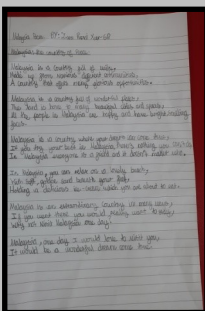 Malaysia Poem
Malaysia is a country full of
Made up from various different
A country that offers many glorious opportunities.
Malaysia is a country full of wonderful places,
This land is home to many beautiful and
All the people in Malaysia are happy and have bright
faces.
Malaysia is a country where your dreams can come true,
If you try your best in Malaysia, there's nothing you can't do
In Malaysia everyone is a and it doesn't matter who.
In Malaysia, you can relax on a lovely beach,
With soft, golden sand beneath your feet,
Holding a delicious ice-cream which you are about to eat.
Malaysia is an extraordinary country in many ways,
If you went there you would really want to stay,
Why not visit Malaysia one day!
Malaysia, one day I would love to visit you,
It would be a wonderful dream come true!